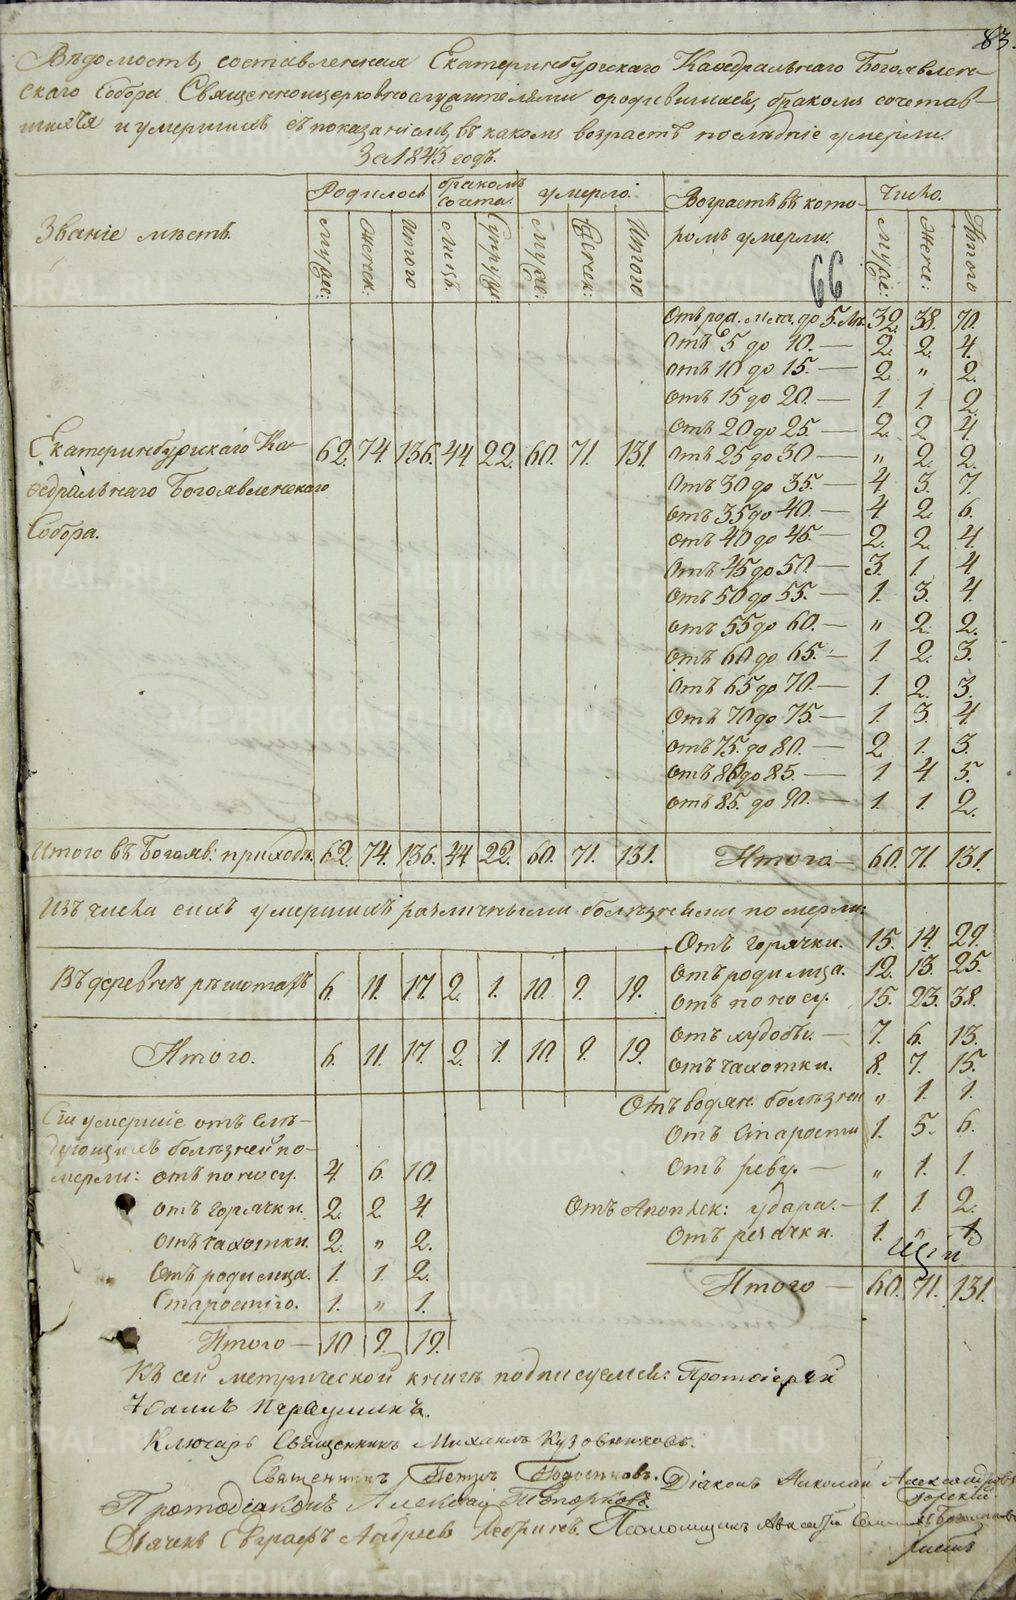 83.
Вѣдомость, составленная Екатеринбургскаго Каѳедральнаго Богоявлен-
скаго Собора Священноцерковнослужителями о родившихся, бракомъ сочетав-
шихся и умершихъ съ показаніемъ, въ какомъ возрастѣ послѣдніе умерли.
За 1843 годъ.
Званіе мѣстъ.
Родилось
бракомъ сочета.
умерло.
Возрастъ въ кото-
ромъ умерли.
Число.
Муже: Женск: Итого Лицъ. Супруж. Муже: Женск: Итого
Муже: Женс: Итого
66
Отъ рож. мла. до 5. лѣ. 32. 38. 70.
Отъ 5 до 10. — 2. 2. 4.
Отъ 10 до 15. — 2. " 2.
Отъ 15 до 20. — 1. 1. 2.
Отъ 20 до 25. — 2. 2. 4.
Екатеринбургскаго Ка-
ѳедральнаго Богоявленскаго
Собора.
62. 74. 136. 44 22. 60. 71. 131.
Отъ 25 до 30 — " 2. 2.
Отъ 30 до 35. — 4. 3. 7.
Отъ 35 до 40. — 4 2. 6.
Отъ 40 до 45. — 2. 2. 4.
Отъ 45 до 50. — 3. 1. 4.
Отъ 50 до 55. — 1. 3. 4.
Отъ 55 до 60. — " 2. 2.
Отъ 60 до 65. — 1. 2. 3.
Отъ 65 до 70. — 1. 2. 3.
Отъ 70 до 75. — 1. 3. 4.
Отъ 75. до 80. — 2. 1. 3.
Отъ 80 до 85. — 1. 4 5.
Отъ 85. до 90. — 1. 1. 2.
Итого въ Богояв: приходѣ. 62. 74. 136. 44 22. 60. 71. 131. Итого — 60. 71 131.
Изъ числа сихъ умершихъ различными болѣзнями померли:
Отъ горячки. 15. 14. 29.
Отъ родимца. 12. 13. 25.
Отъ поносу. 15. 23. 38.
Въ деревнѣ рѣшотахъ 6. 11. 17. 2. 1. 10. 9. 19.
Итого. 6. 11. 17. 2. 1. 10. 9. 19.
Отъ худобы. — 7. 6. 13.
Отъ чахотки. 8. 7. 15.
Отъ водян. болѣзни " 1. 1.
Отъ Старости 1. 5. 6.
Отъ реву. — " 1. 1.
Отъ Апоплек: удара. — 1. 1. 2.
Отъ резачки. 1. " 1.
Итого — 60. 71. 131.
Сіи умершіе отъ слѣ-
дующихъ болѣзней по-
мерли: отъ поносу. 4. 6. 10.
отъ горячки. 2. 2 4
отъ чахотки. 2. " 2.
Отъ родимца. 1. 1. 2.
Старостію. 1. " 1.
Итого — 10 9. 19.
Къ сей метрической книгѣ подписуемся: Протоіерей
Іоаннъ
Ключарь Священникъ Михаилъ Кузовниковъ.
Священникъ Петръ Діаконъ Николай Александров
Протодіаконъ Алексѣй Топорковъ.
Дьячекъ Евграфъ Андреев Пономарь
METRIKI.GASO-URAL.RU